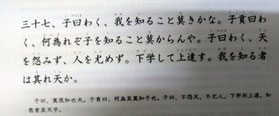 三十七、子曰わく、我を知ること莫きかな。子貢曰わ
く、何為れぞ子を知ること莫からんや。子曰わく、天
を怨みず、人を尤めず。下学して上達す。我を知る者
は其れ天か。
子曰、莫我知也夫。子貢曰、何為其莫知子也。子曰、不怨天、不尤人。下学而上達。知
我者其天乎。